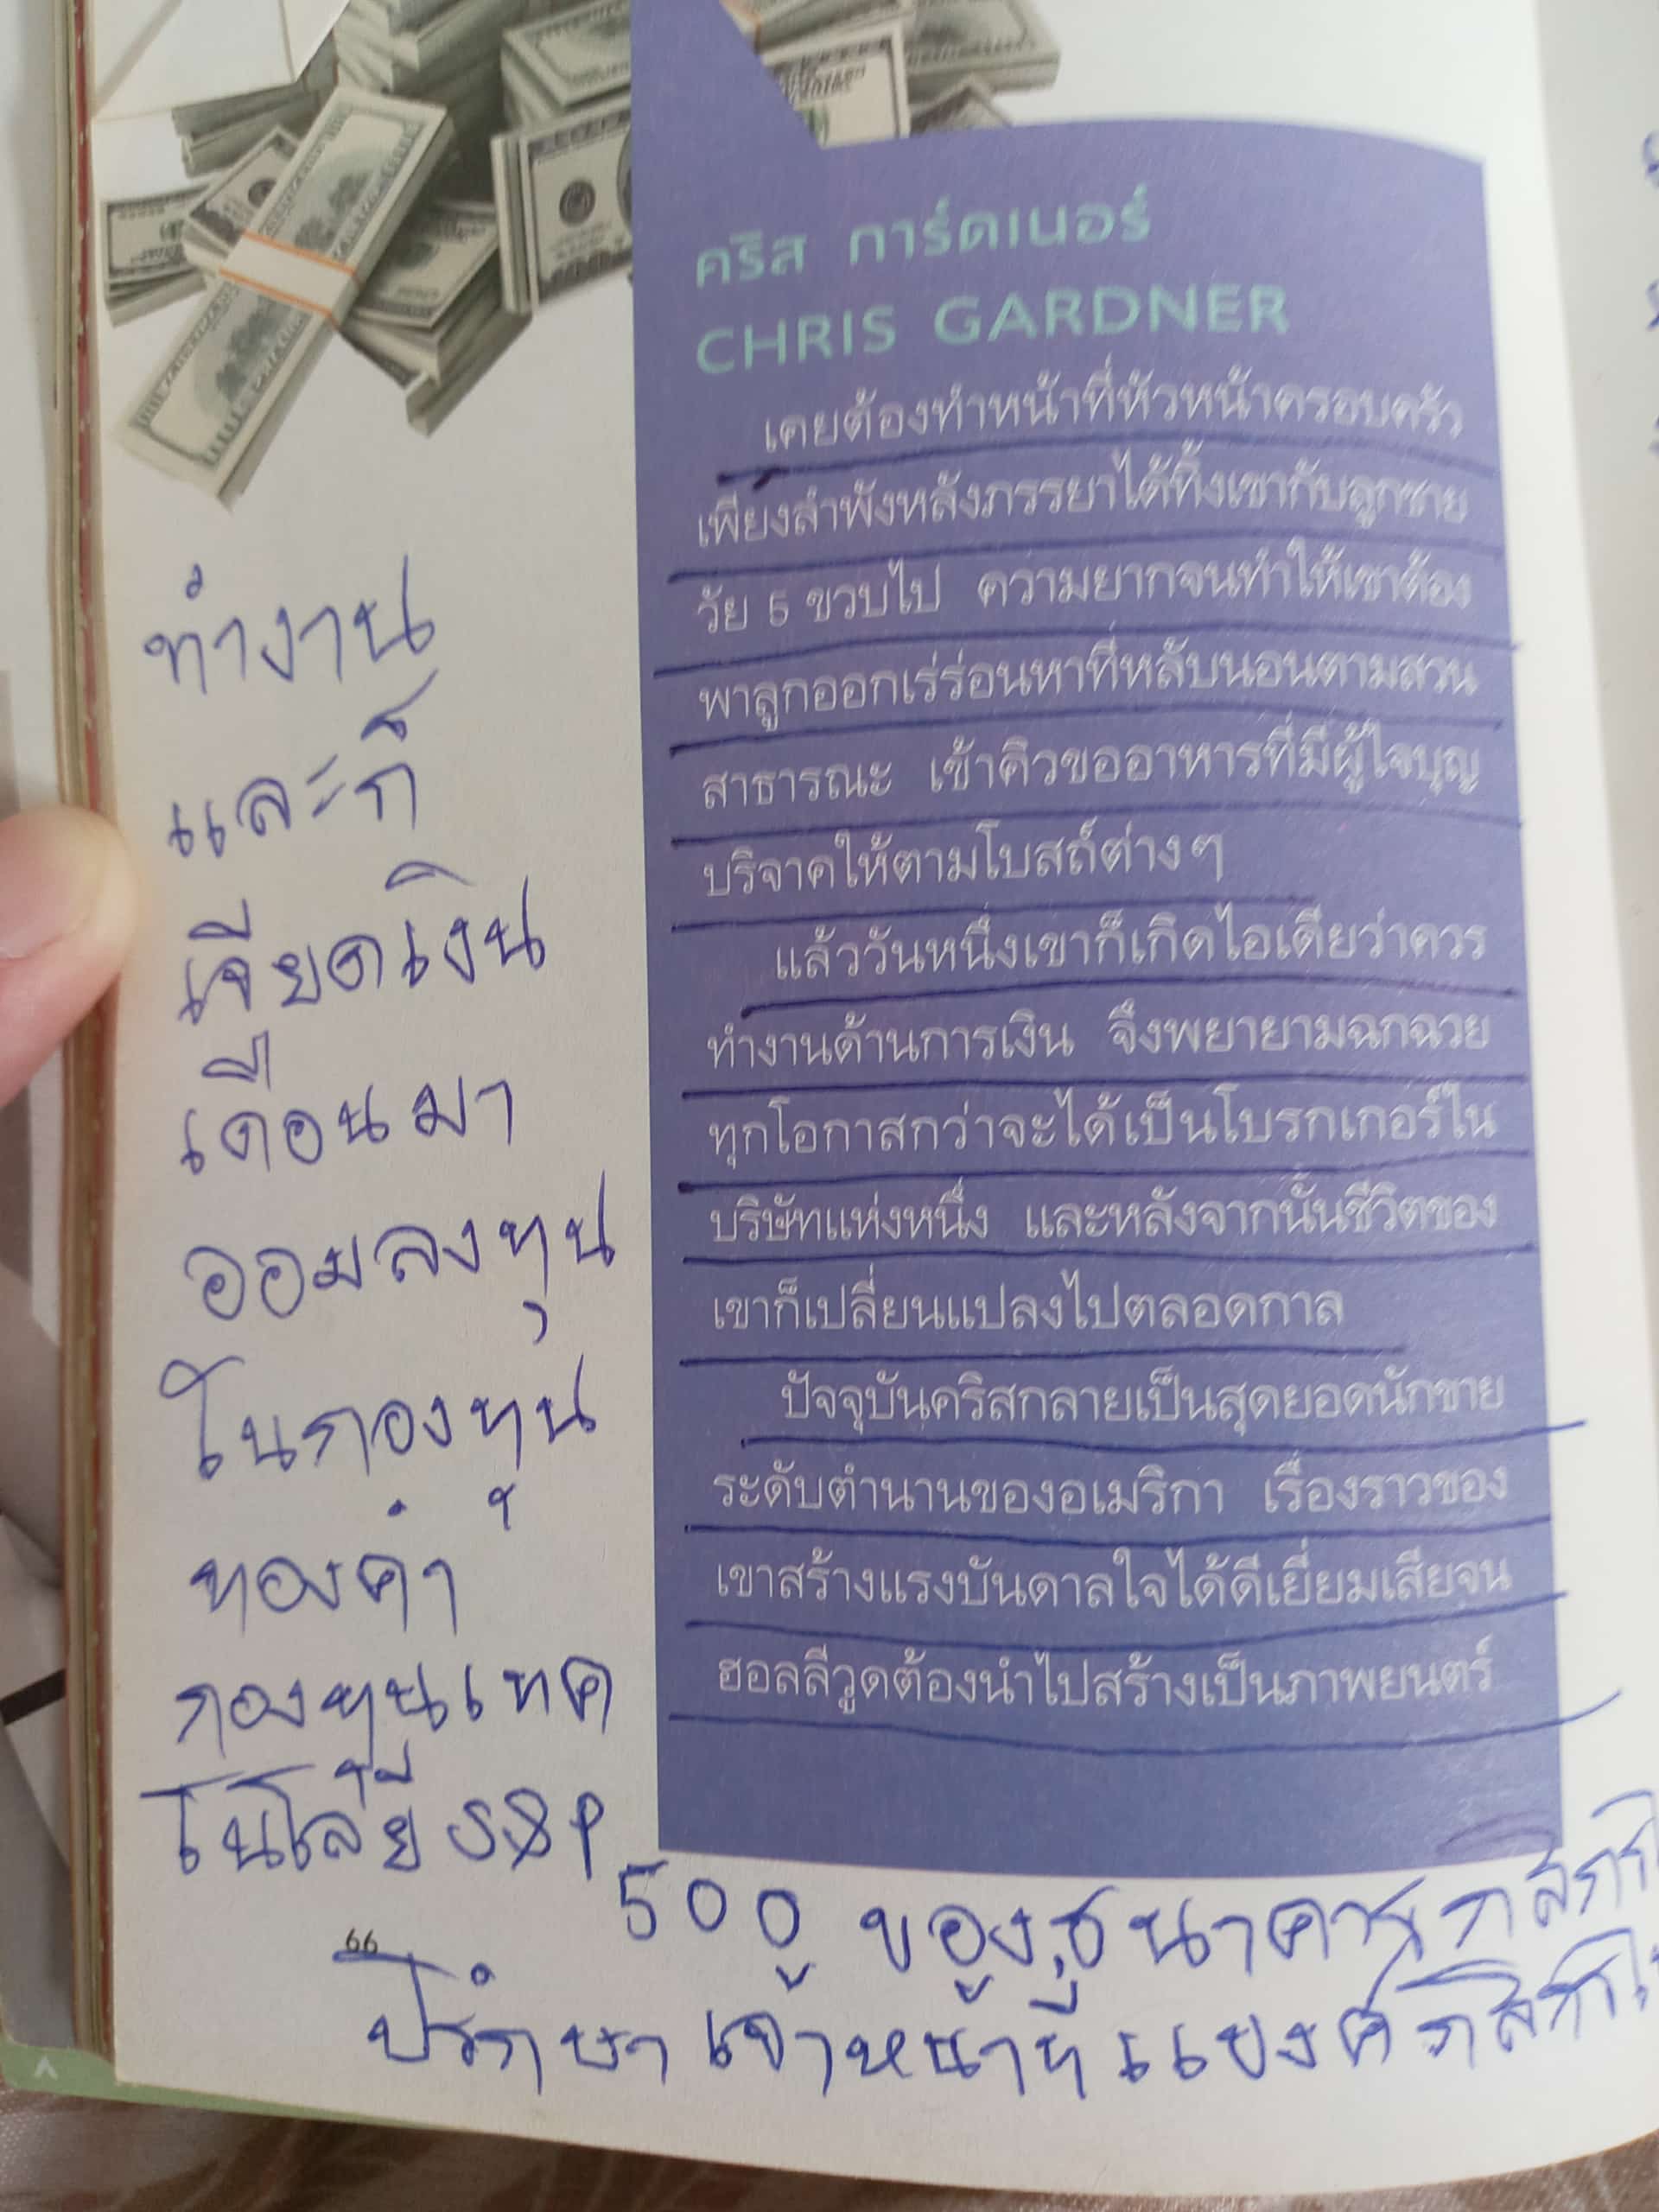 คริส การ์ดเนอร์
CHRIS GARDNER
เคยต้องทำหน้าที่หัวหน้าครอบครัว
เพียงลำพังหลังภรรยาได้ทิ้งเขากับลูกชาย
วัย 5 ขวบไป ความยากจนทำให้เขาต้อง
พาลูกออกเร่ร่อนหาที่หลับนอนตามสวน
สาธารณะ เข้าคิวขออาหารที่มีผู้ใจบุญ
บริจาคให้ตามโบสถ์ต่างๆ
แล้ววันหนึ่งเขาก็เกิดไอเดียว่าควร
ทำงานด้านการเงิน จึงพยายามฉกฉวย
ทุกโอกาสกว่าจะได้เป็นโบรกเกอร์ใน
บริษัทแห่งหนึ่ง และหลังจากนั้นชีวิตของ
เขาก็เปลี่ยนแปลงไปตลอดกาล
ปัจจุบันคริสกลายเป็นสุดยอดนักขาย
ระดับตำนานของอเมริกา เรื่องราวของ
เขาสร้างแรงบันดาลใจได้ดีเยี่ยมเสียจน
ฮอลลีวูดต้องนำไปสร้างเป็นภาพยนตร์
ทำงาน
และก็
เจียดเงิน
เดือนมา
ออมลงทุน
ในกองทุน
ทองคำ
กองทุนเทค
โนโลยี S&P
500 ของธนาคารกสิกร
66
ปรึกษาเจ้าหน้าที่แบงค์กสิกร